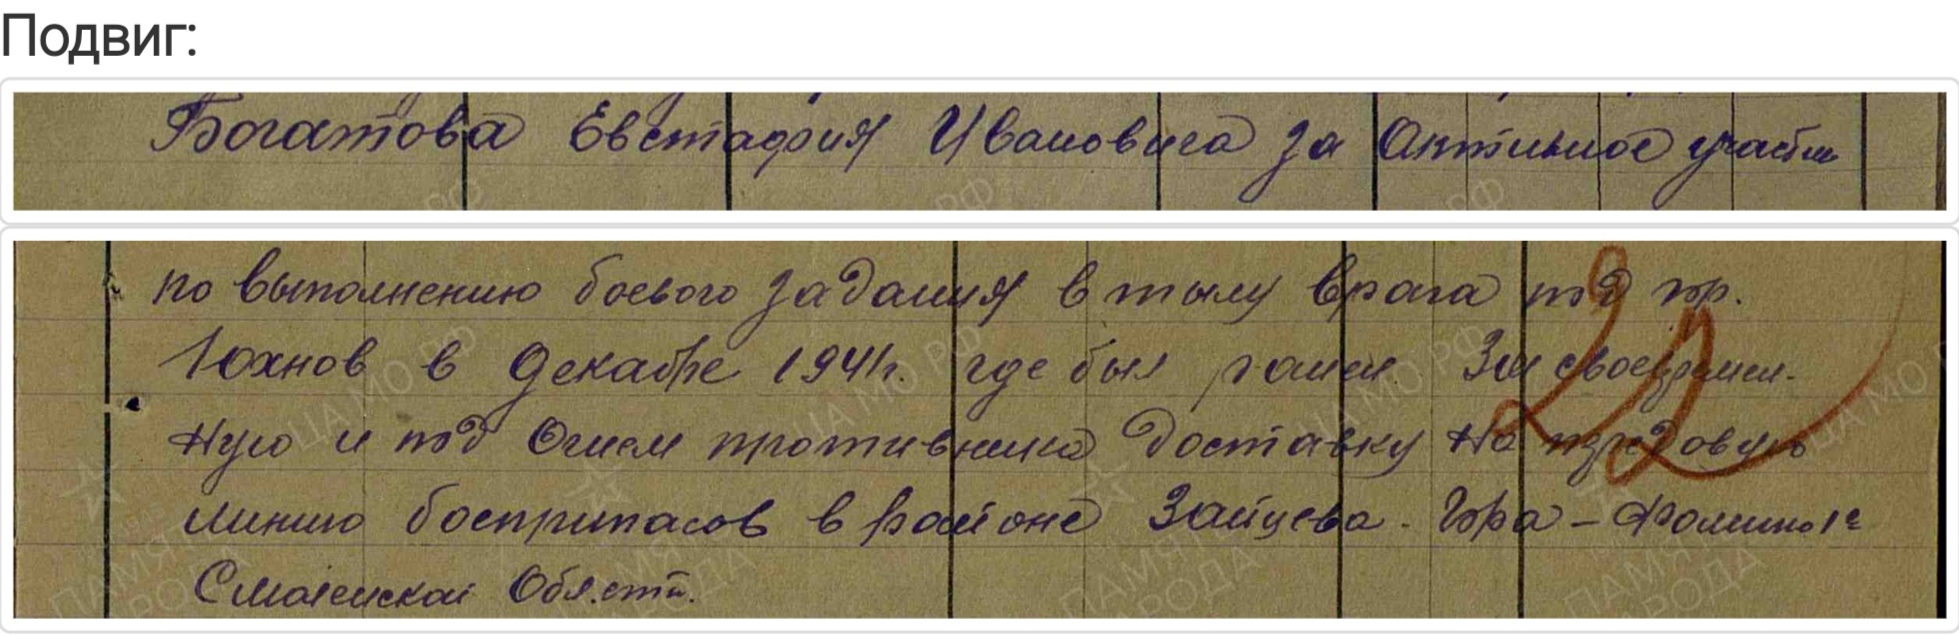 Подвиг:
Богатова Евстафия Ивановича за Активное участие
по выполнению боевого задания в тылу врага под гор.
Юхнов в декабре 1941г. где был ранен. За своевремен-
ную и под Огнем противника доставку на передовую
линию боеприпасов в районе Зайцева. Гора - Фомино 1е
Смоленской Обл.сти.
22
ПАМЯТЬ НАРОДА
ЦА МО РФ